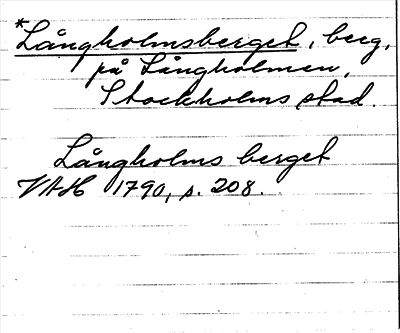 *Långholmsberget, berg,
på Långholmen,
Stockholms stad.
Långholms berget
VAH 1790, s. 208.